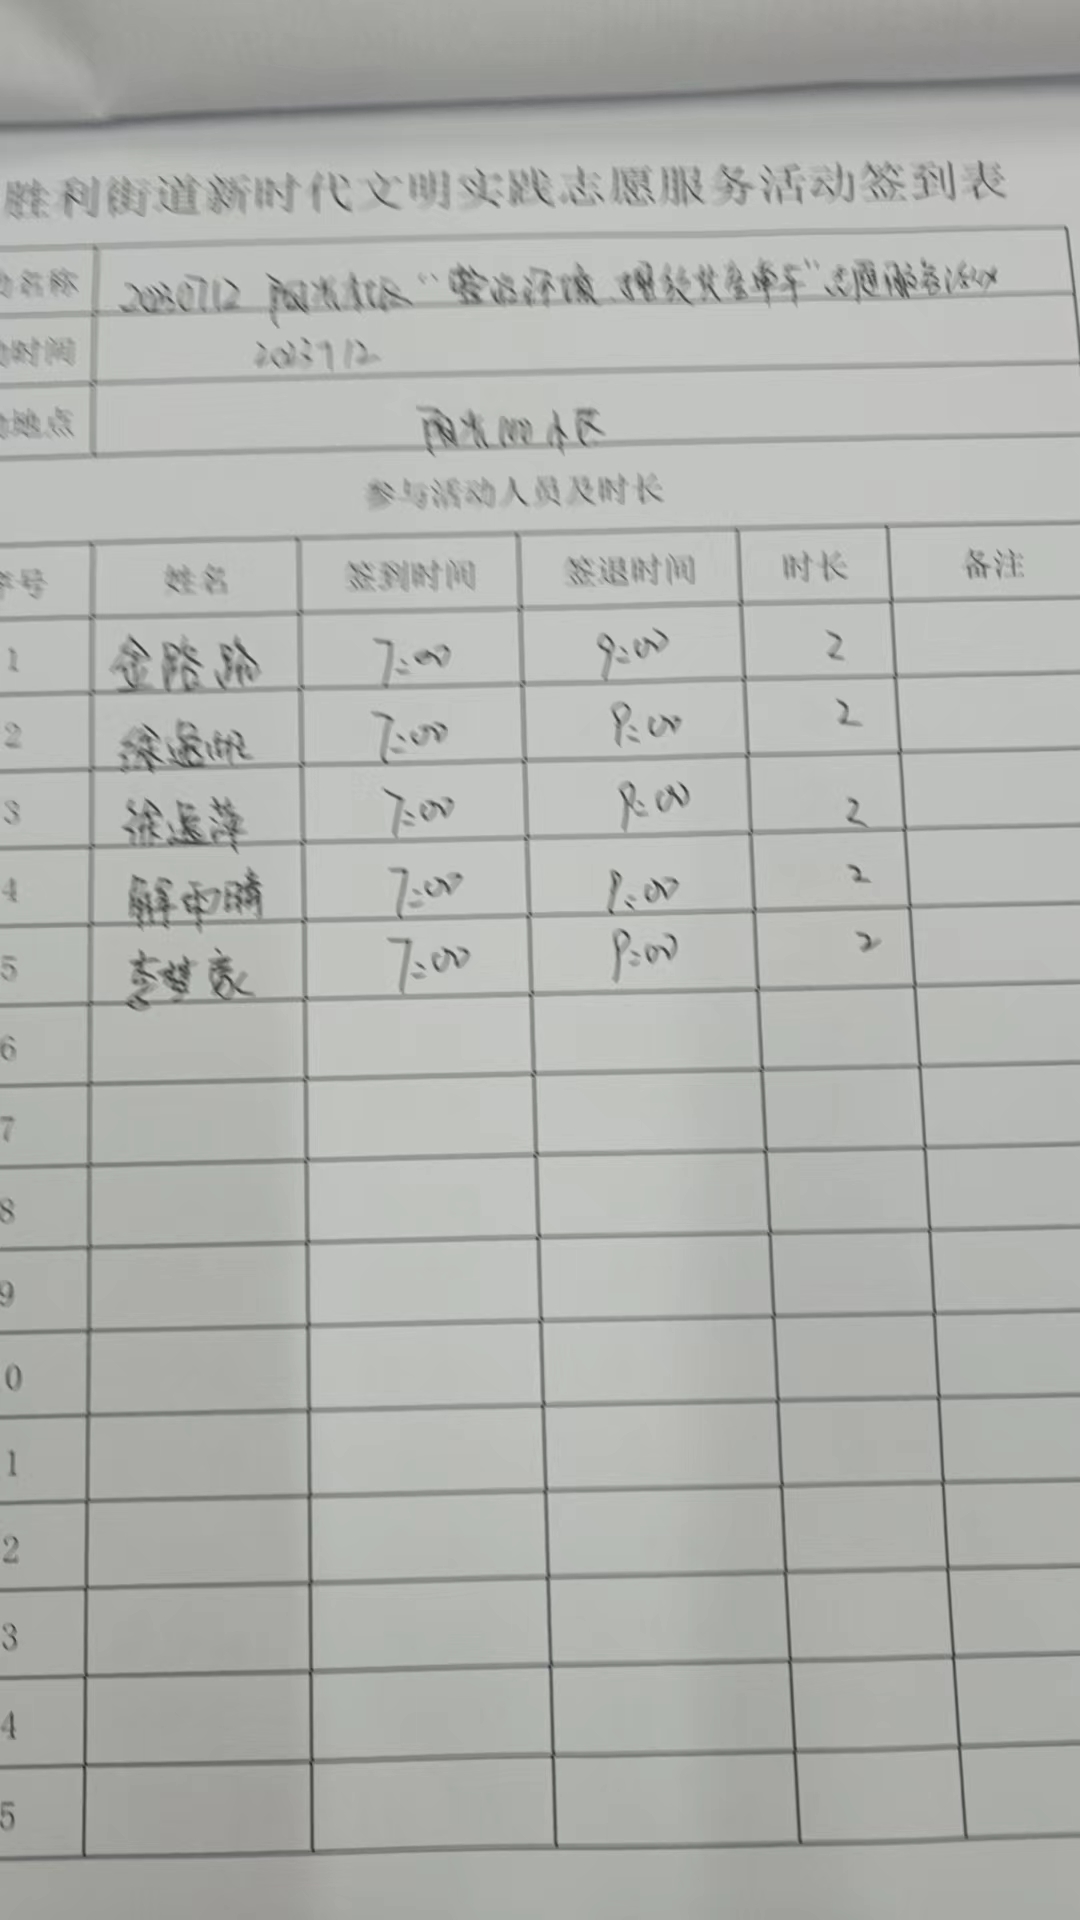 胜利街道新时代文明实践志愿服务活动签到表
名称 20230712 阳光社区“整治环境、摆放共享单车”志愿服务活动
时间 2023 7 12
地点 阳光100小区
参与活动人员及时长
序号 姓名 签到时间 签退时间 时长 备注
1 金路路 7:00 9:00 2
2 徐 7:00 9:00 2
3 徐 萍 7:00 9:00 2
4 解雨晴 7:00 9:00 2
5 李梦家 7:00 9:00 2
6
7
8
9
0
1
2
3
4
5